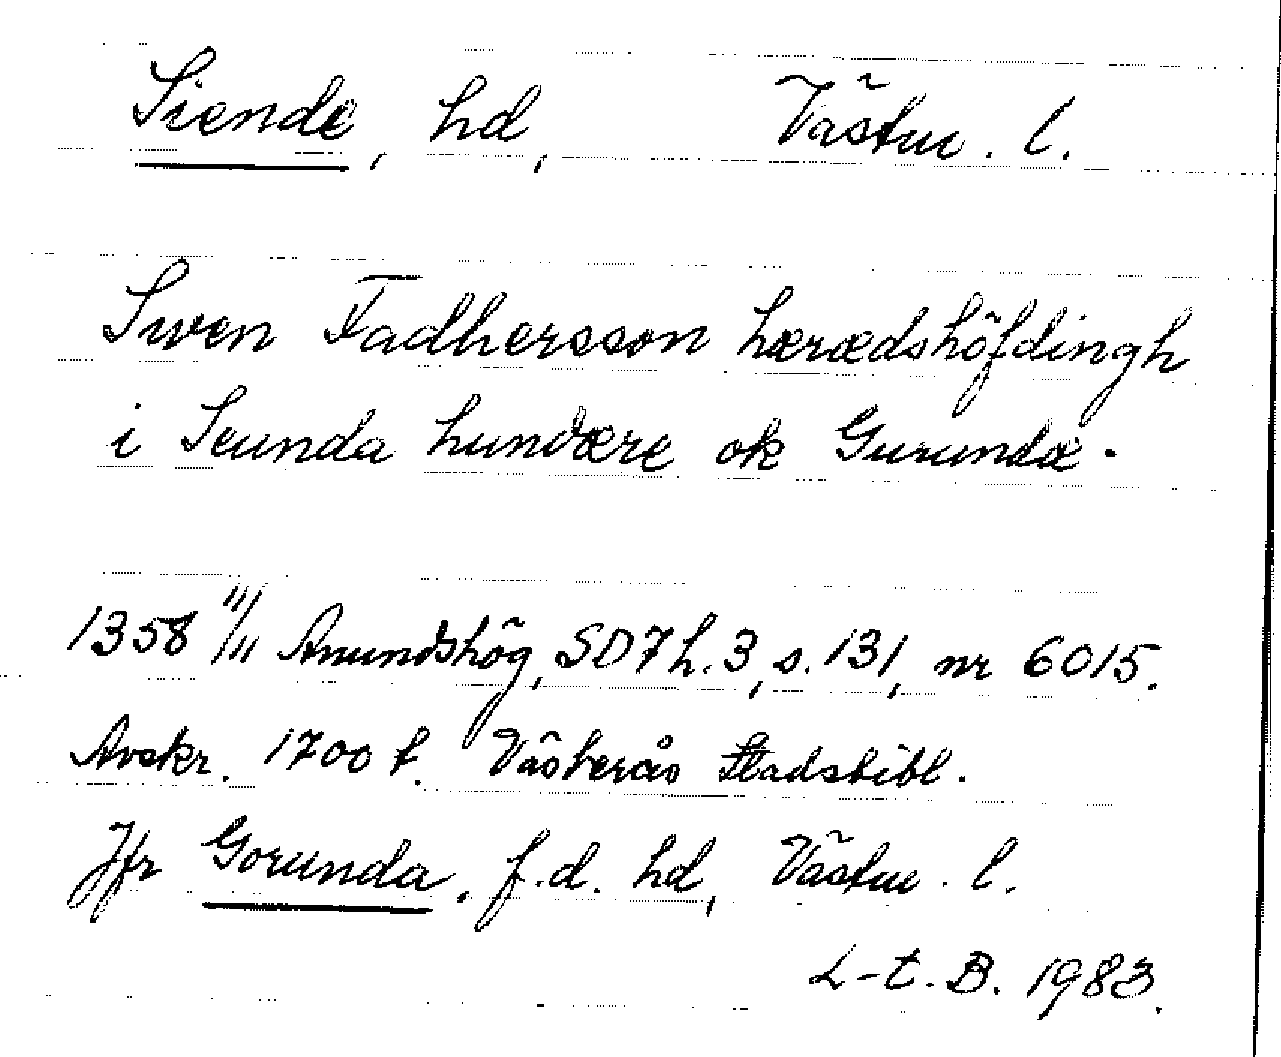 Siende, hd, Västm. l.
Swen Fadhersson hæradshöfdingh
i Seunda hundære ok Gurunda.
1358 11/11 Anundshög, SD 7 h. 3, s. 131, nr 6015.
Avskr. 1700 t. Västerås Stadsbibl.
Jfr Gorunda, f.d. hd, Västm. l.
L-t. B. 1983.